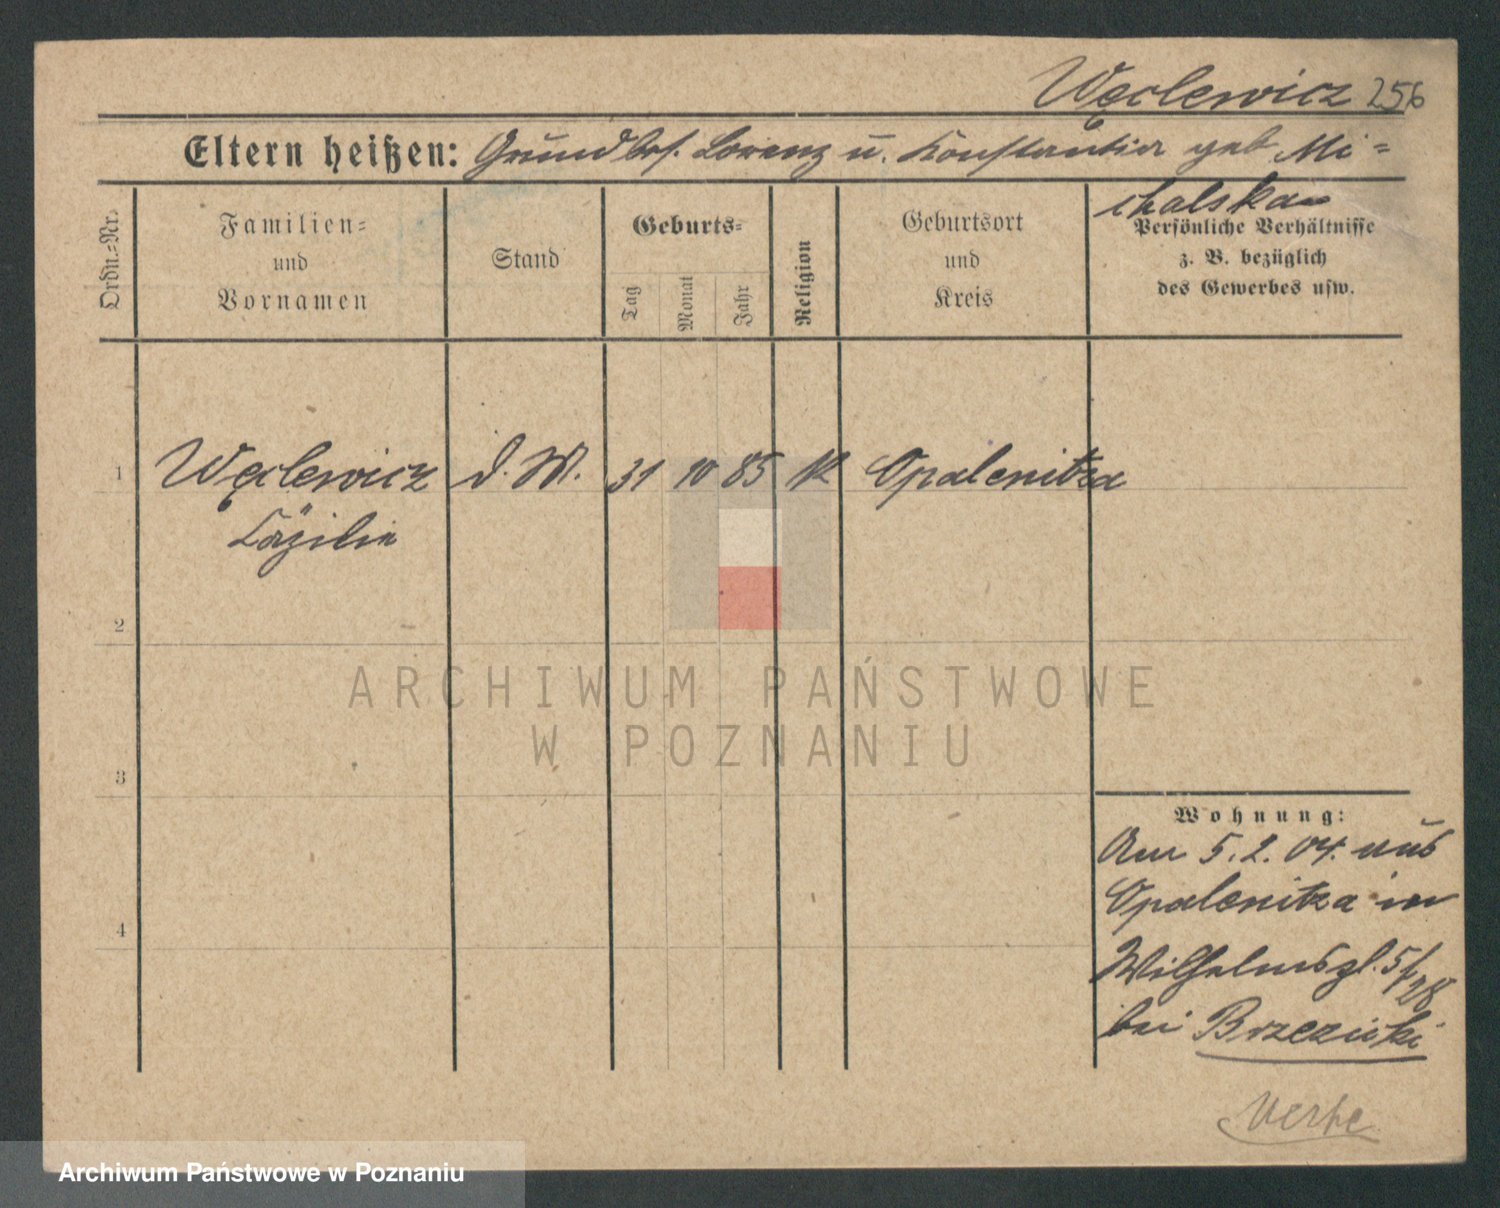 Węclewicz 256
Eltern heißen: Grundbes. Lorenz u. Konstantia geb. Mi=
chalska
Ordn.=Nr.
Familien=
und
Vornamen
Stand
Geburts=
Tag
Monat
Jahr
Religion
Geburtsort
und
Kreis
Persönliche Verhältnisse
z. B. bezüglich
des Gewerbes usw.
1 Węclewicz d. M. 31 10 85 K Opalenitza
Cäzilie
2
3
4
ARCHIWUM PAŃSTWOWE
W POZNANIU
Wohnung:
Am 5.2.04. aus
Opalenitza in
Wilhelmspl. 5/
bei Brzezicki
Archiwum Państwowe w Poznaniu